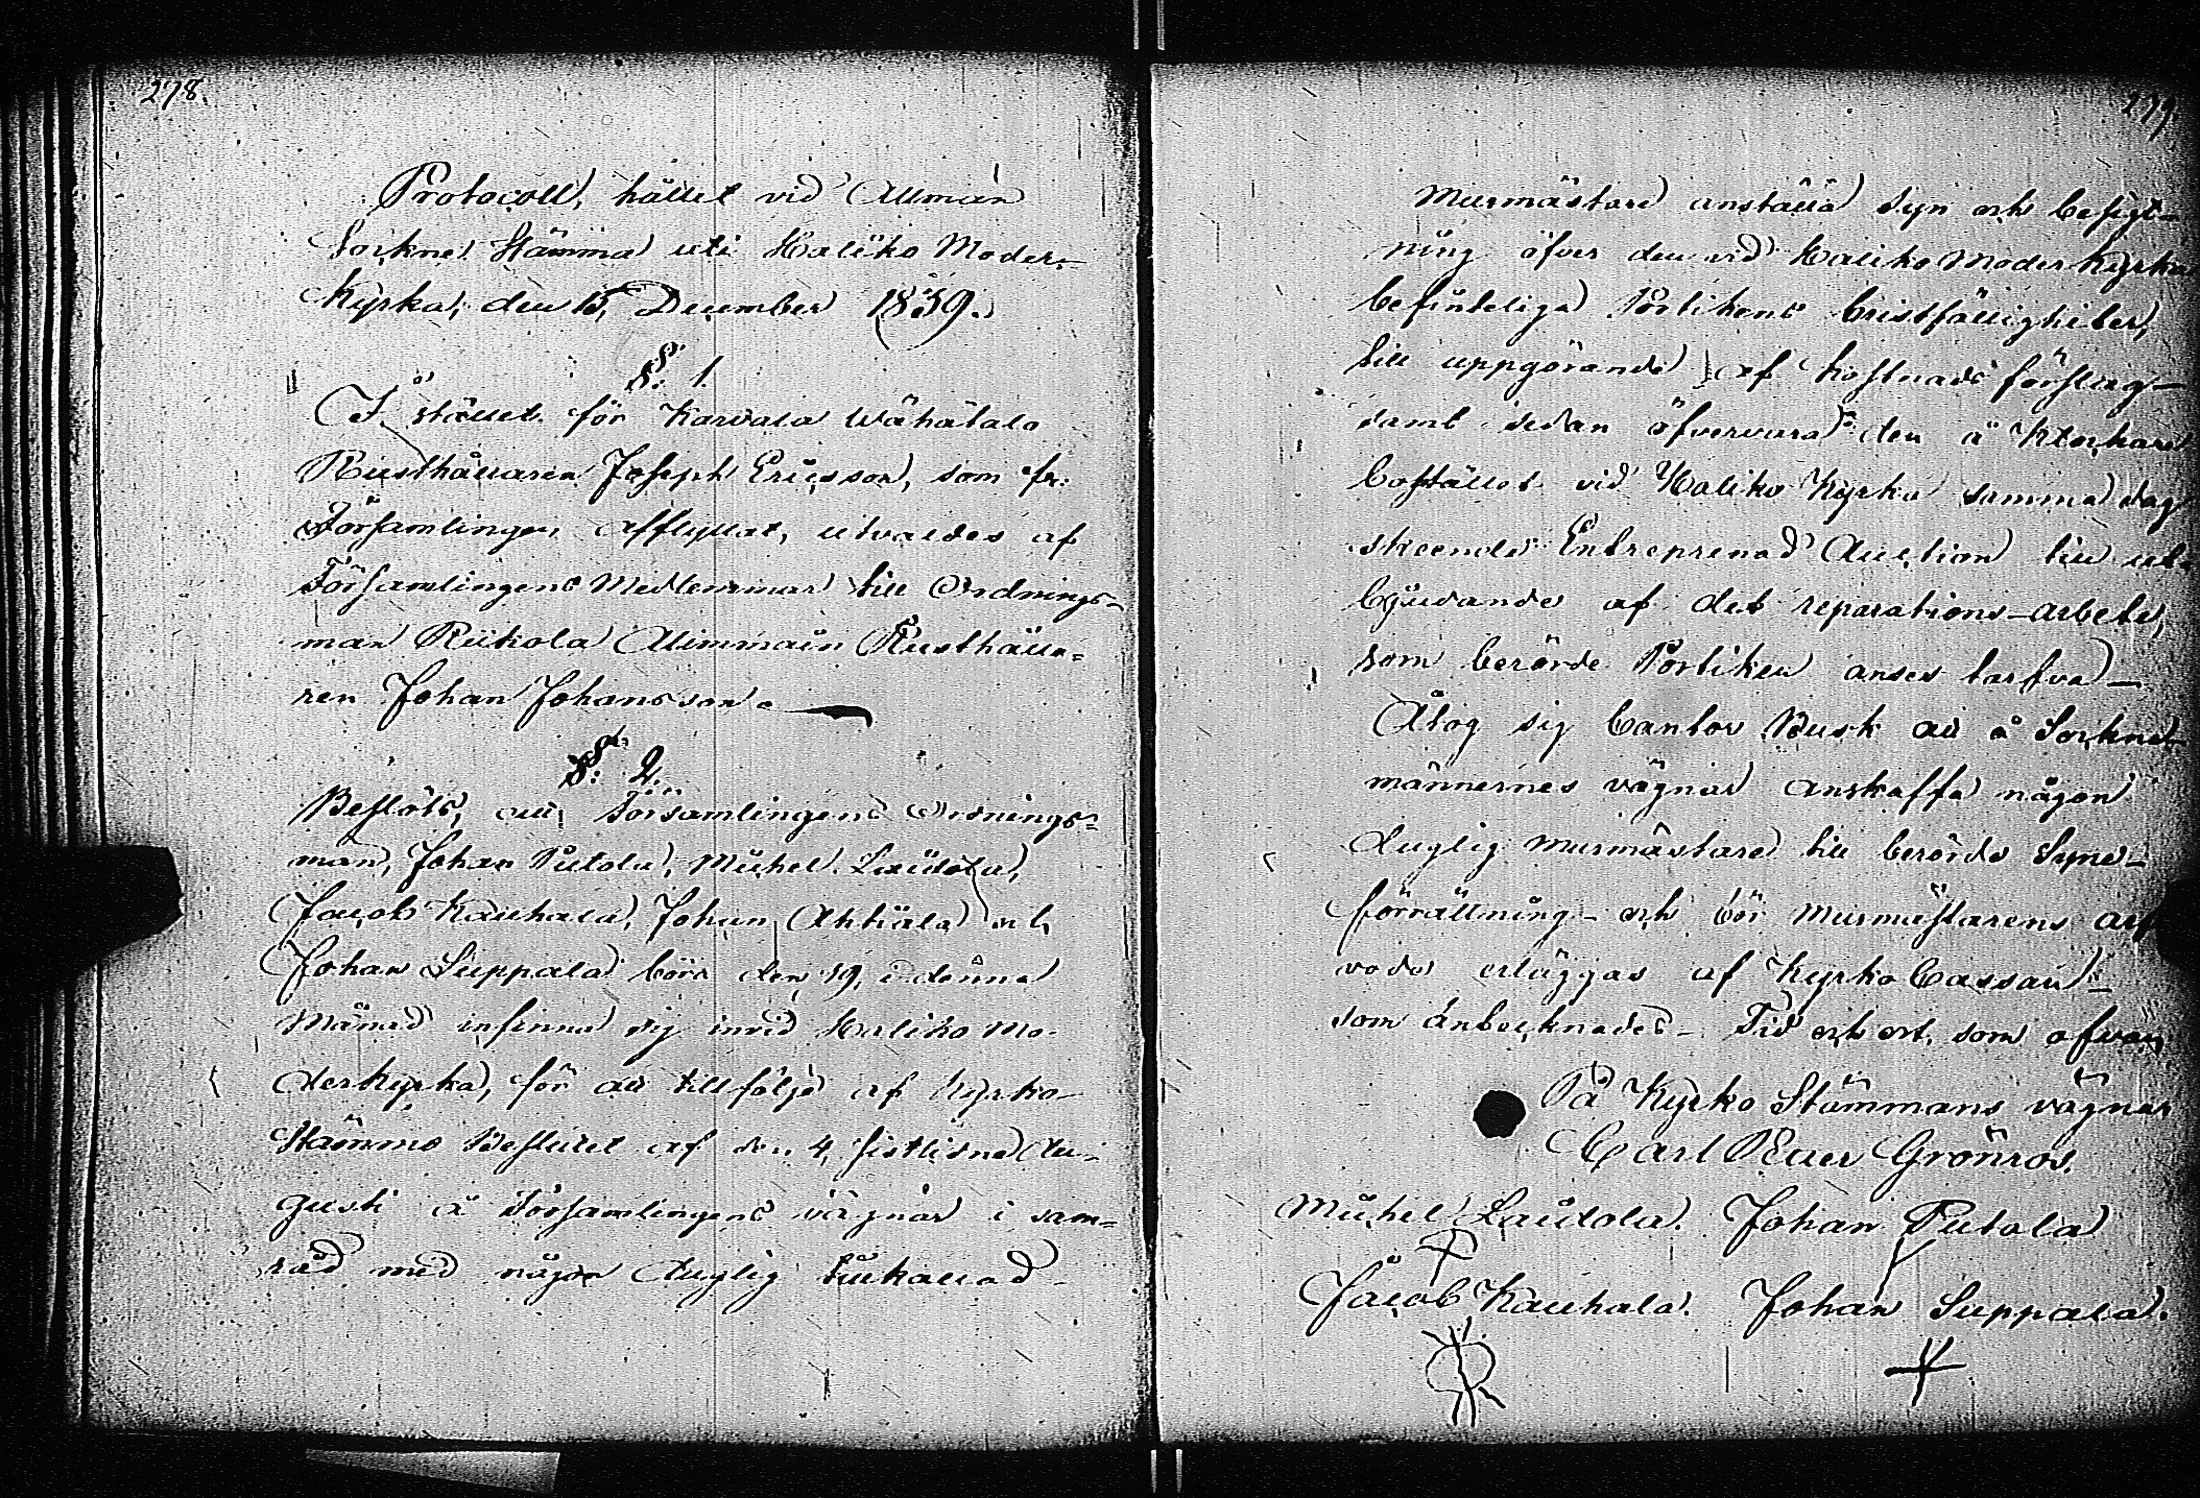 278.
Protocoll, hållet vid Allmän
Sockne Stämma uti Haliko Moder-
Kyrka, den 15, December 1839.
§. 1.
I stället för Karvala Wähätalo
Rusthållaren Joseph Ericsson, som fr:
Församlingen afflyttat, utvaldes af
Församlingens Medlemmar till Ordnings-
man Riikola Alimmain Rusthålla=
ren Johan Johansson.
§. 2.
Beslöts, att Församlingens Ordnings=
män, Johan Putola, Michel Laidola,
Jacob Kauhala, Johan Ahtiala och
Johan Suppala böra den 19, i denna
Månad infinna sig invid Haliko Mo-
derkyrka, för att till följe af Kyrko-
Stämmo Beslutet af den 4, sistlidne Au-
gusti å Församlingens vägnar i sam=
råd med någon duglig tillkallad
279.
Murmästare anställa Syn och besigt-
ning öfver den vid Haliko Moder Kyrka
befinteliga Portikens bristfälligheter,
till uppgörande af kostnads förslag-
samt sedan öfvervara den å Klockare
bostället vid Haliko Kyrka samma dag
skeende Entreprenad Auction till ut-
bjudande af det reparations-arbete,
som berörde Portiken anses tarfva-
Åtog sig Cantor Busk att å Sockne-
männernes vägnar anskaffa någon
duglig murmästare till berörde Syne-
förrättning- och bör Murmästarens arf
vode erläggas af Kyrko Cassan-
som anteknades- Tid och ort, som ofvan
På Kyrko Stämmans vägnar
Carl Petter Grönros.
Michel Laidola. Johan Putola
Jacob Kauhala. Johan Suppala.